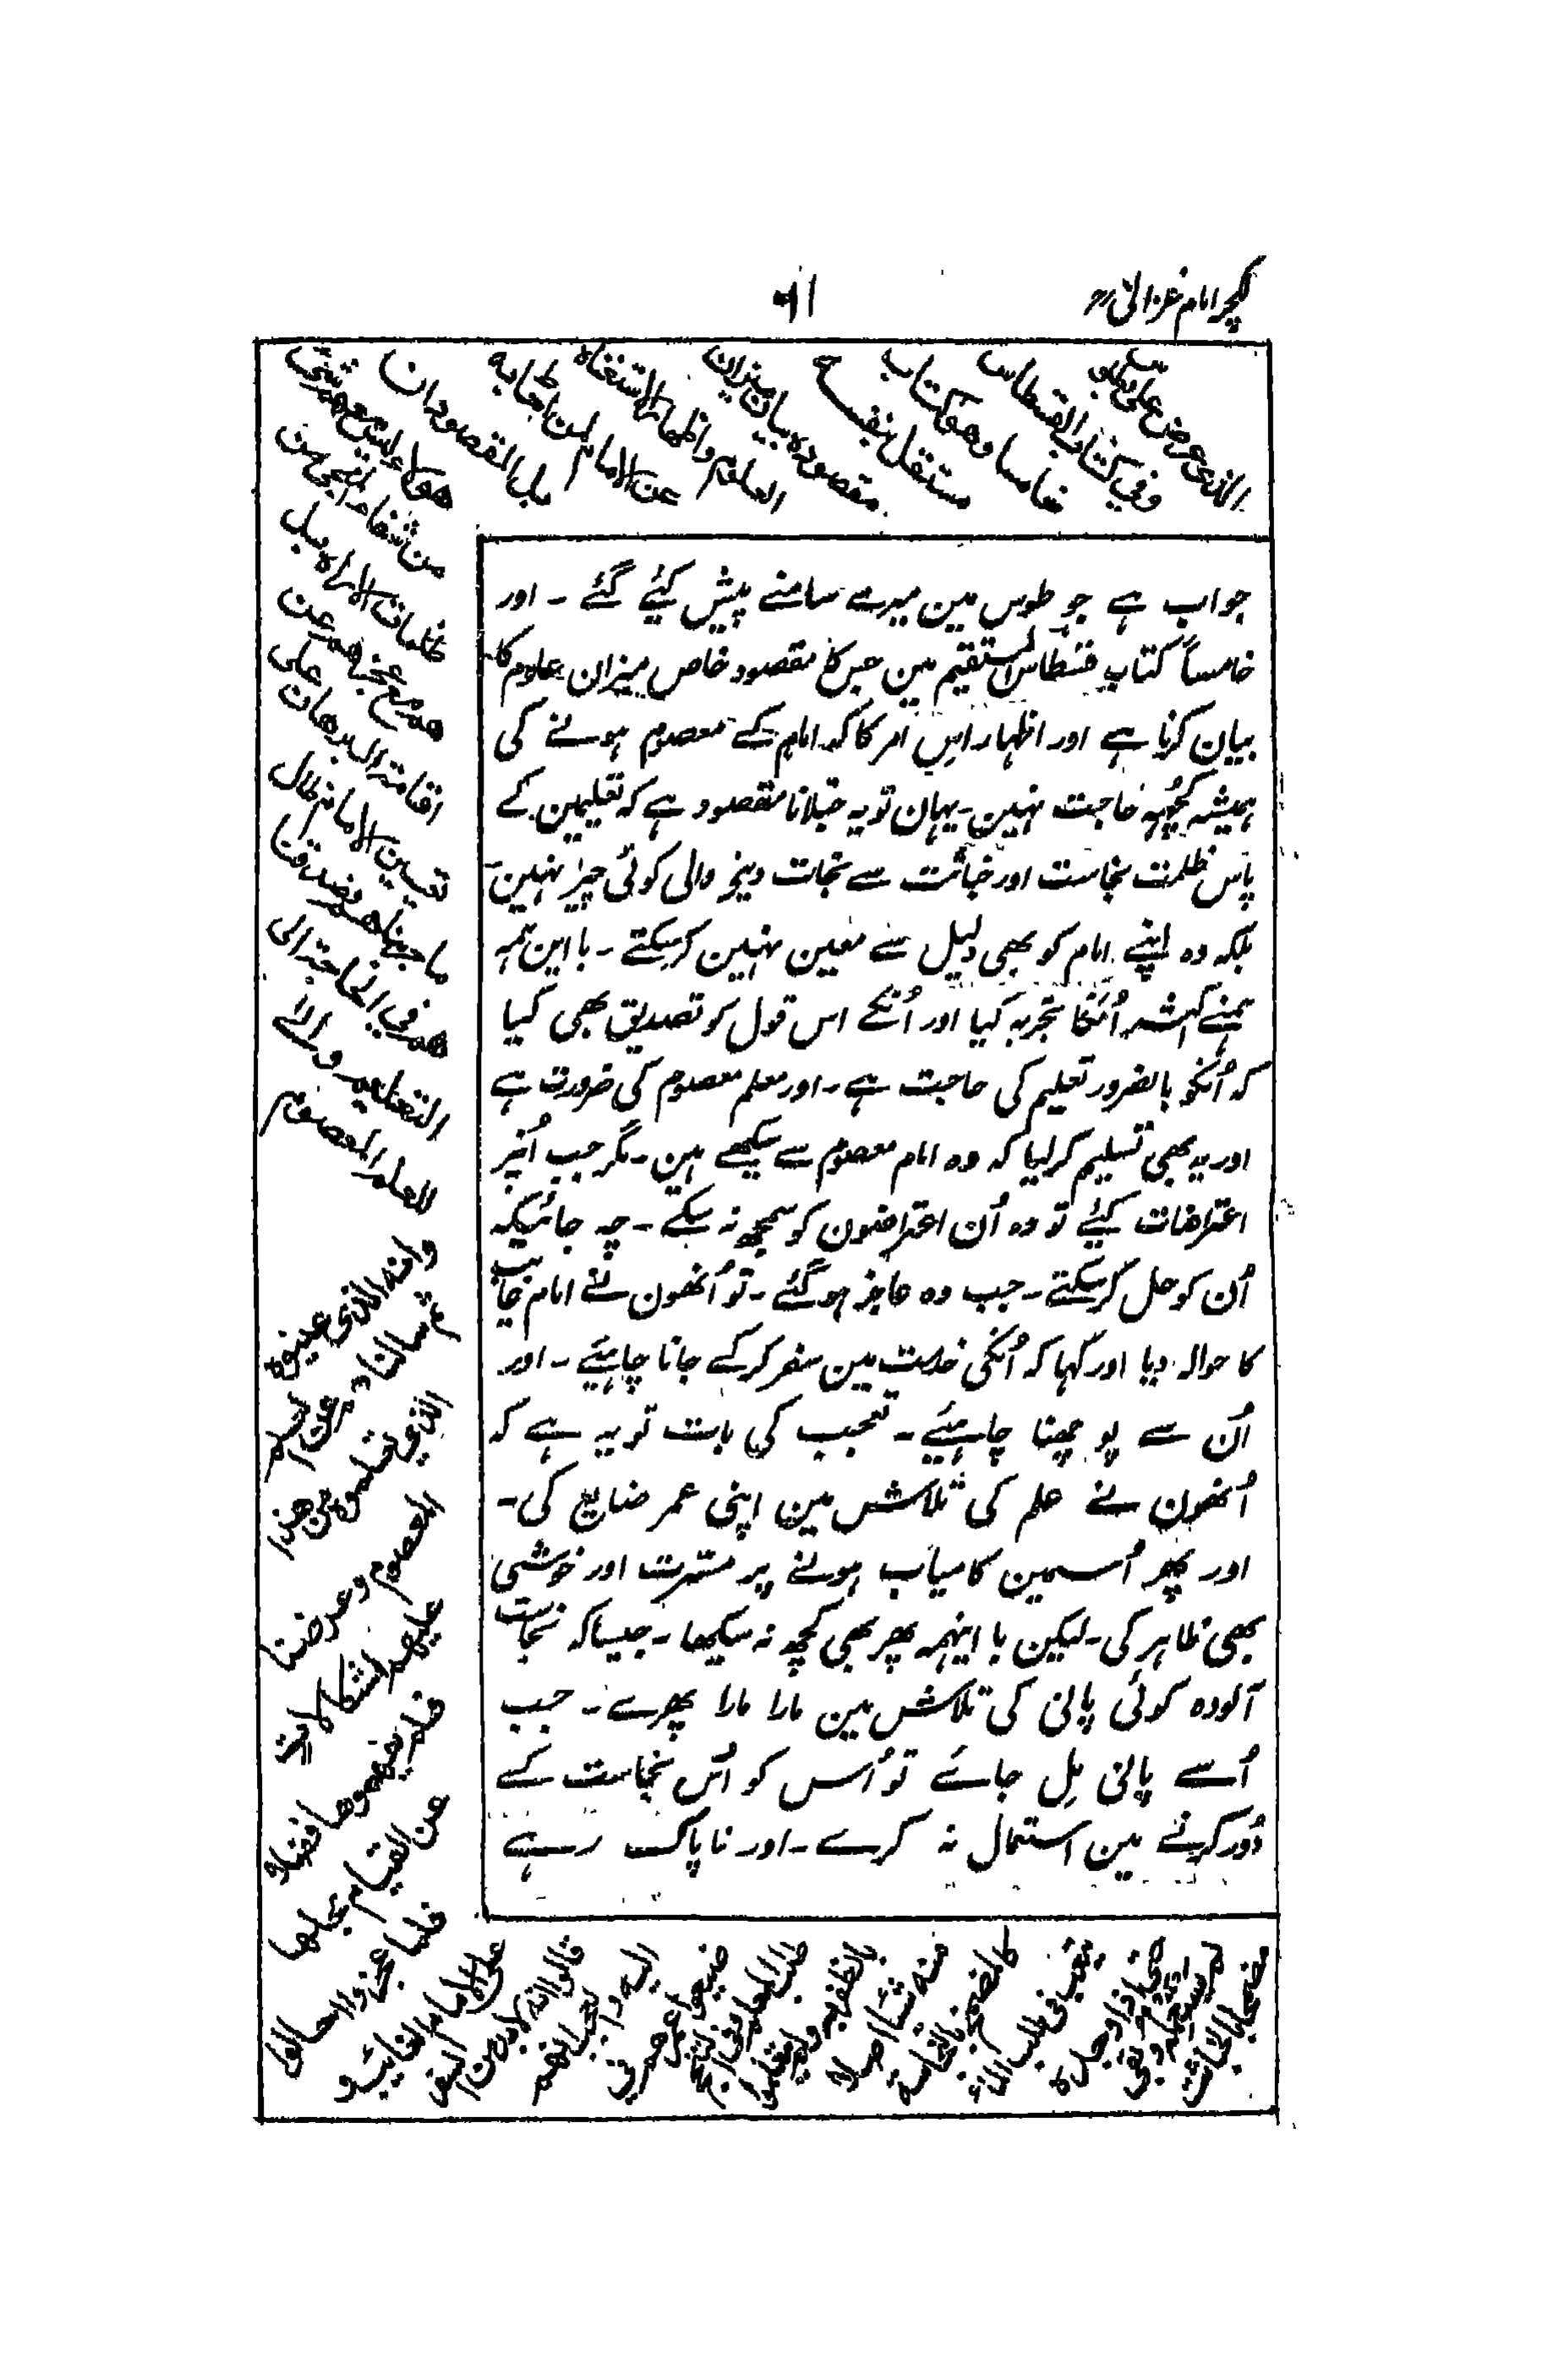 لکچر امام غزالیؒ
۶۱
الذی عرض علی بطوس
وفي كتاب القسطاس
خامسا وهو كتاب
مستقل بنفسه
مقصوده بيان ميزان
العلوم واظهار الاستغناء
عن الامام لمن احاط به
بل المقصود ان
هؤلاء ليس معهم شئ
من الشفاء المنجى من
ظلمات الاراء بل
هم مع عجزهم عن
اقامة البرهان على
تعيين الامام طال
ما جربناهم فصدقناهم
في الحاجة الى
التعليم والى
المعلم المعصوم
وانه الذى عينوه
ثم سالناهم عن العلم
الذي تعلموه من هذا
المعصوم وعرضنا
عليهم اشكالات
فلم يفهموها فضلا
عن القيام بحلها
فلما عجزوا احالوا
على الامام الغايب و
قالوا انه لا بد من السفر
اليه والعجب انهم
ضيعوا عمرهم في
طلب المعلم وفي التبجح
بالظفر به ولم يتعلموا
منه شيئا اصلا
كالمتضمخ بالنجاسة
يتعب في طلب الماء
حتى اذا وجده
لم يستعمله وبقى
متضمخا بالخبائث
جواب ہے جو طوس مین میرے سامنے پیش کئے گئے ۔ اور
خامساً کتاب قسطاس المستقیم مین جس کا مقصود خاص میزان علوم کا
بیان کرنا ہے اور اظہار اس امر کا کہ امام کے معصوم ہونے کی
ہمیشہ کچھ حاجت نہین ۔ یہان تو یہ جتلانا مقصود ہے کہ تعلیمین کے
پاس ظلمت نجاست اور خباثت سے نجات دینے والی کوئی چیز نہین ۔
بلکہ وہ اپنے امام کو بھی دلیل سے معین نہین کرسکتے ۔ با این ہمہ
ہمنے اکثر اُنکا تجربہ کیا اور اُنکے اس قول کو تصدیق بھی کیا
کہ اُنکو بالضرور تعلیم کی حاجت ہے ۔ اور معلم معصوم کی ضرورت ہے
اور یہ بھی تسلیم کرلیا کہ وہ امام معصوم سے سیکھے ہین ۔ مگر جب اُنپر
اعتراضات کئے تو وہ اُن اعتراضون کو سمجھ نہ سکے ۔ چہ جائیکہ
اُن کو حل کرسکتے ۔ جب وہ عاجز ہوگئے ۔ تو اُنھون نے امام غائب
کا حوالہ دیا اور کہا کہ اُنکی خدمت مین سفر کرکے جانا چاہئے ۔ اور
اُن سے پوچھنا چاہئے ۔ تعجب کی بات تو یہ ہے کہ
اُنھون نے علم کی تلاش مین اپنی عمر ضایع کی ۔
اور پھر اُسمین کامیاب ہونے پر مسّرت اور خوشی
بھی ظاہر کی ۔ لیکن با اینہمہ پھر بھی کچھ نہ سیکھا ۔ جیسا کہ نجاست
آلودہ کوئی پانی کی تلاش مین مارا مارا پھرے ۔ جب
اُسے پانی مِل جائے تو اُس کو اُس نجاست کے
دُور کرنے مین استعمال نہ کرے ۔ اور ناپاک رہے